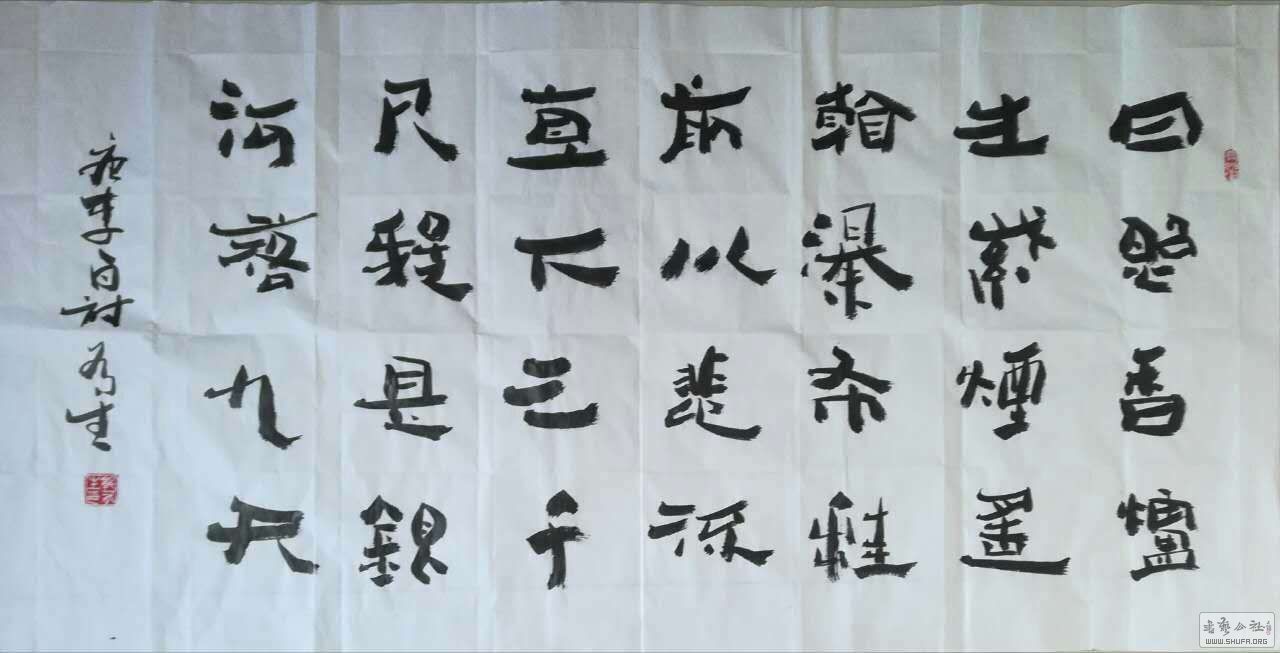 日照香爐
生紫煙遥
看瀑布挂
前川飛流
直下三千
尺疑是銀
河落九天
唐李白詩
書藝公社
WWW.SHUFA.ORG